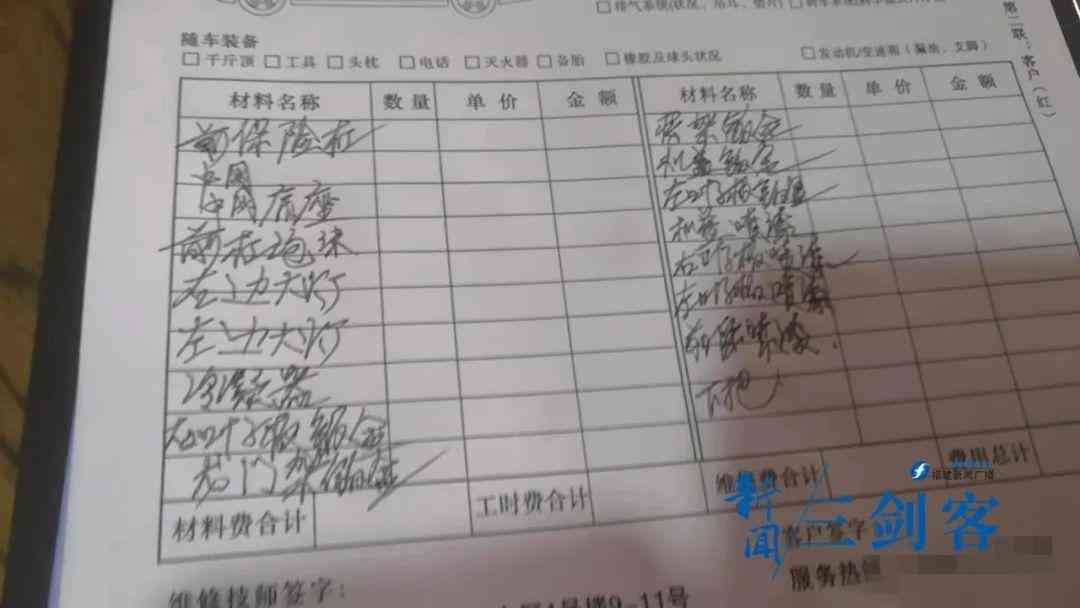 排气系统(状况、吊耳、垫片)
第二联：客户（红）
随车装备
千斤顶 工具 头枕 电话 灭火器 备胎 橡胶及球头状况 发动机/变速箱（漏油、支脚）
材料名称 数量 单价 金额 材料名称 数量 单价 金额
前保险杠
中网
中网底座
前杠泡沫
左边大灯
左边大灯
冷凝器
右叶子板钣金
龙门架钣金
骨架钣金
机盖钣金
左叶子板钣金
机盖喷漆
右叶子板喷漆
左叶子板喷漆
前保喷漆
下把
材料费合计 工时费合计 维修费合计 费用总计
福建新闻广播
新闻三剑客
客户签字
维修技师签字：
服务热
1号楼9-11号